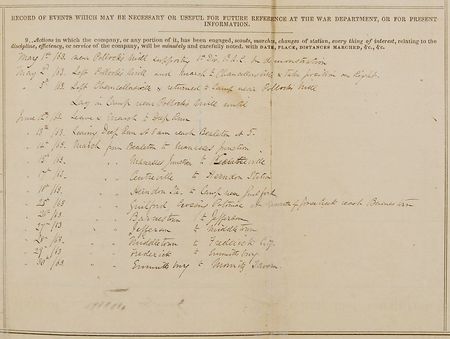 RECORD OF EVENTS WHICH MAY BE NECESSARY OR USEFUL FOR FUTURE REFERENCE AT THE WAR DEPARTMENT, OR FOR PRESENT
INFORMATION.
9. Actions in which the company, or any portion of it, has been engaged, scouts, marches, changes of station, every thing of interest, relating to the
discipline, efficiency, or service of the company, will be minutely and carefully noted, with DATE, PLACE, DISTANCES MARCHED, &c., &c.
May 1st /63. near Pollocks Mill supporting 1st Div. in demonstration
May 2d /63. Left Pollocks Mill and March to Chancellorsville & Take position on Right
" 5th /63. Left Chancellorsville & returned to Camp near Pollocks Mill
Lay in Camp near Pollocks Mill until
June 12th /63. Leave & March to Deep Run
" 13th /63. Leaving Deep Run at 8 am reach Bealeton at 5.
" 14th /63. March from Bealeton to Manassas Junction
" 15th /63. " Manassas Junction to Centreville
" 17th /63. " Centreville to Herndon Station
" 19th /63. " Herndon Sta. to Camp near Guilford
" 25th /63. " Guilford Crossing Potomac at mouth of reach Barnestown
" 26th /63. " Barnestown to Jefferson
" 27th /63. " Jefferson to Middletown
" 28th /63. " Middletown to Frederick City
" 29th /63. " Frederick to Emmitsburg
" 30th /63. " Emmitsburg to Moritz Tavern